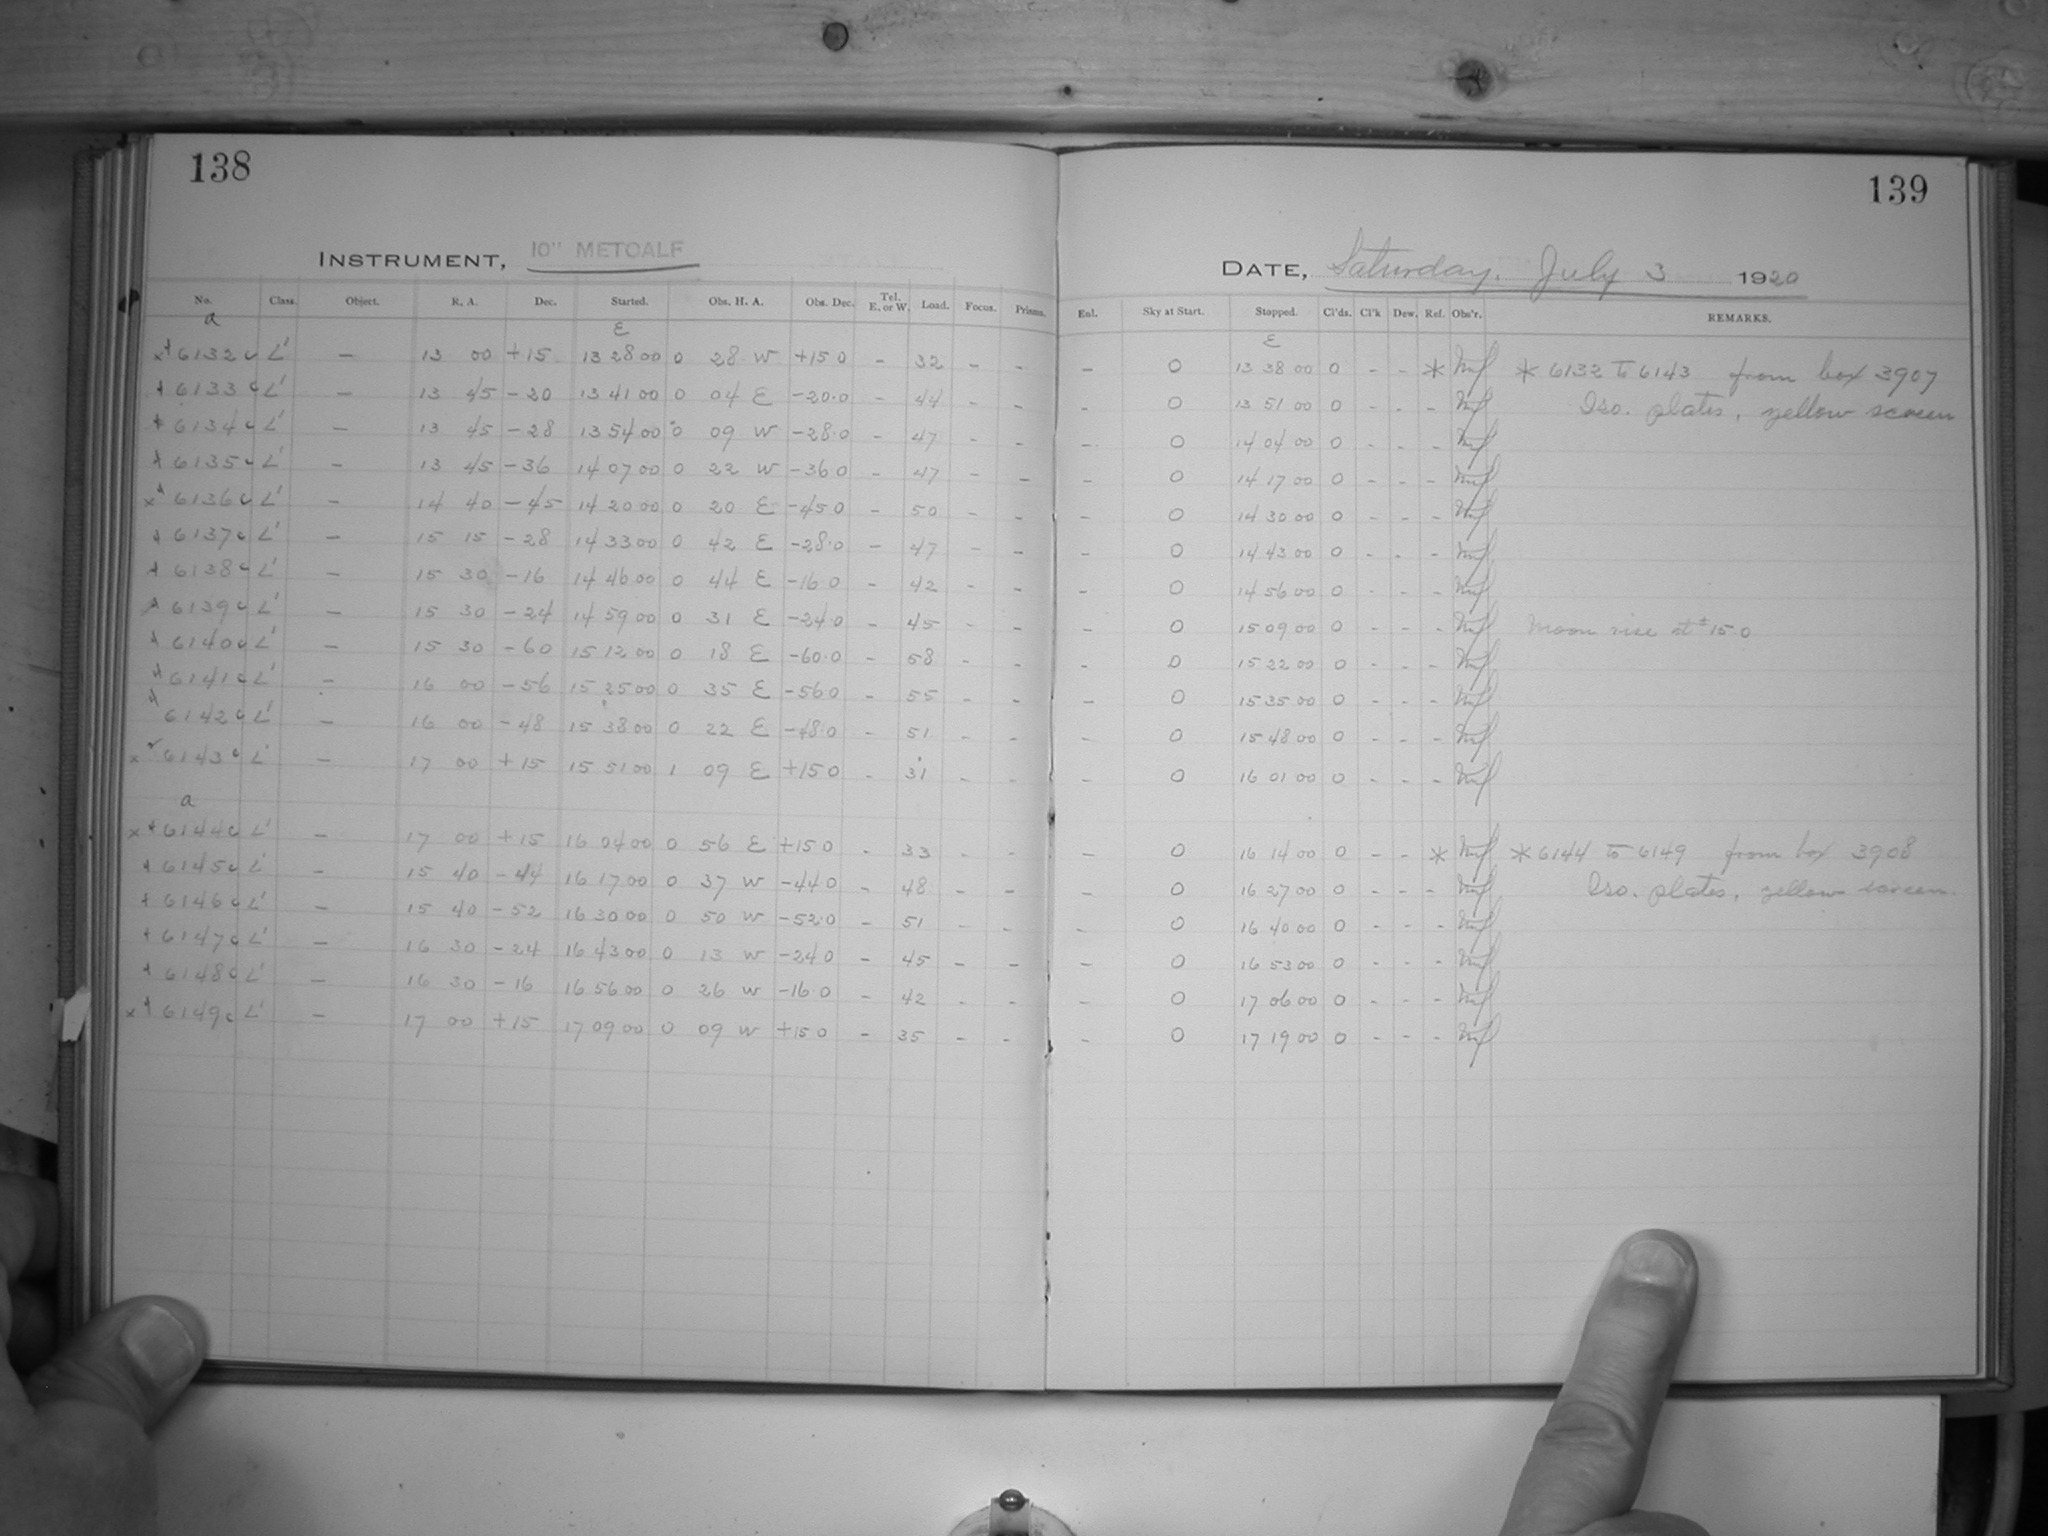 138
INSTRUMENT, 10" METCALF
No. Class. Object. R. A. Dec. Started. Obs. H. A. Obs. Dec. Tel. E. or W. Load. Focus. Prisms.
a ε
x 6132 c L' — 13 00 +15 13 28 00 0 28 W +15 0 - 32 - -
6133 c L' — 13 45 -20 13 41 00 0 04 E -20.0 - 44 - -
6134 c L' — 13 45 -28 13 54 00 0 09 W -28.0 - 47 - -
6135 c L' — 13 45 -36 14 07 00 0 22 W -36 0 - 47 - -
x 6136 c L' — 14 40 -45 14 20 00 0 20 E -45 0 - 50 - -
6137 c L' — 15 15 -28 14 33 00 0 42 E -28.0 - 47 - -
6138 c L' — 15 30 -16 14 46 00 0 44 E -16 0 - 42 - -
6139 c L' — 15 30 -24 14 59 00 0 31 E -24 0 - 45 - -
6140 c L' — 15 30 -60 15 12 00 0 18 E -60.0 - 58 - -
6141 c L' — 16 00 -56 15 25 00 0 35 E -56 0 - 55 - -
6142 c L' — 16 00 -48 15 38 00 0 22 E -48.0 - 51 - -
x 6143 c L' — 17 00 +15 15 51 00 1 09 E +15 0 - 31 - -
a
x 6144 c L' — 17 00 +15 16 04 00 0 56 E +15 0 - 33 - -
6145 c L' — 15 40 -44 16 17 00 0 37 W -44 0 - 48 - -
6146 c L' — 15 40 -52 16 30 00 0 50 W -52.0 - 51 - -
6147 c L' — 16 30 -24 16 43 00 0 13 W -24 0 - 45 - -
6148 c L' — 16 30 -16 16 56 00 0 26 W -16 0 - 42 - -
x 6149 c L' — 17 00 +15 17 09 00 0 09 W +15 0 - 35 - -
139
DATE, Saturday, July 3 1920
Enl. Sky at Start. Stopped. Cl'ds. Cl'k Dew. Ref. Obs'r. REMARKS.
ε
- 0 13 38 00 0 - - * * 6132 to 6143 from box 3907
- 0 13 51 00 0 - - - Iso. plates, yellow screen
- 0 14 04 00 0 - - -
- 0 14 17 00 0 - - -
- 0 14 30 00 0 - - -
- 0 14 43 00 0 - - -
- 0 14 56 00 0 - - -
- 0 15 09 00 0 - - - Moon rise at ± 15 0
- 0 15 22 00 0 - - -
- 0 15 35 00 0 - - -
- 0 15 48 00 0 - - -
- 0 16 01 00 0 - - -
- 0 16 14 00 0 - - * * 6144 to 6149 from box 3908
- 0 16 27 00 0 - - - Iso. plates, yellow screen
- 0 16 40 00 0 - - -
- 0 16 53 00 0 - - -
- 0 17 06 00 0 - - -
- 0 17 19 00 0 - - -